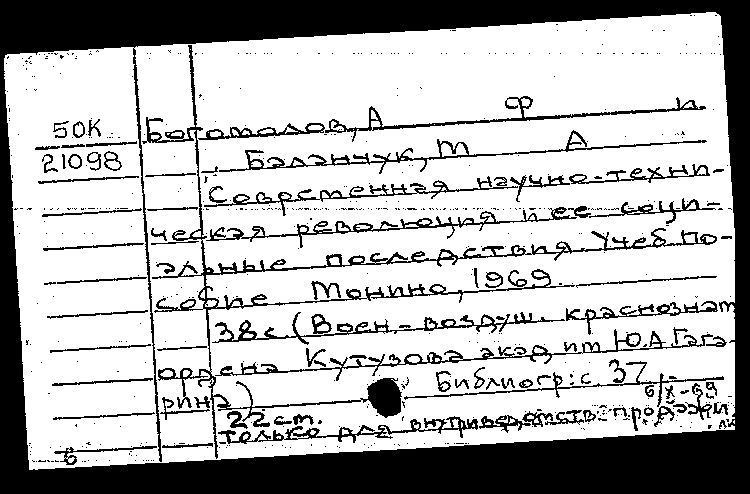 50К Богомолов, А Ф п.
21098 , Баланчук, М А
Современная научно-техни-
ческая революция и ее соци-
альные последствия. Учеб. по-
собие. Монино, 1969.
38 с (Воен.-воздуш. краснознам
ордена Кутузова акад. им Ю.А. Гага-
рина) Библиогр: с. 37.
22 cm. 6/X-69
только для внутриведомств. продажи
6